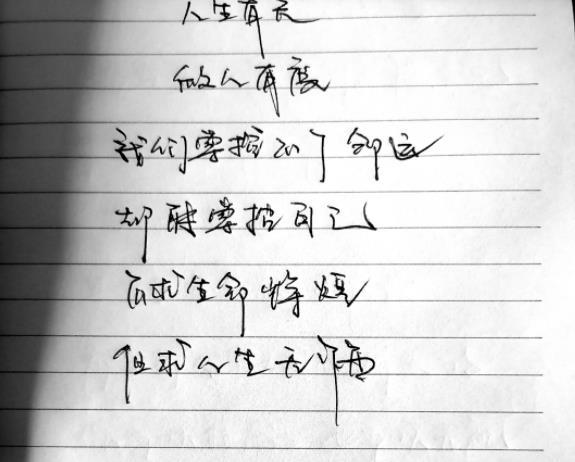 人生有尺
做人有度
我们掌控不了命运
却能掌控自己
不求生命辉煌
但求人生无悔